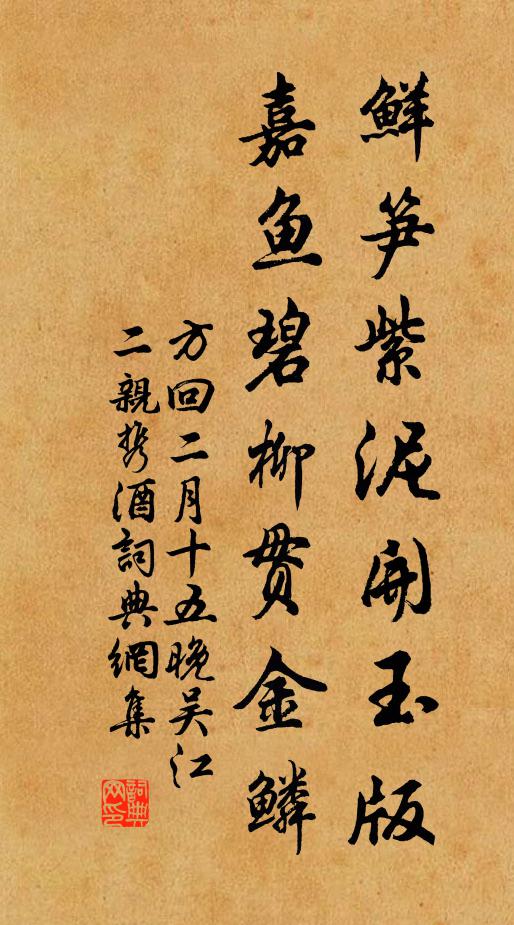 鮮笋紫泥開玉版
嘉鱼碧柳贯金鳞
方回二月十五晚吴江
二親携酒詞典網集
詞典
网印